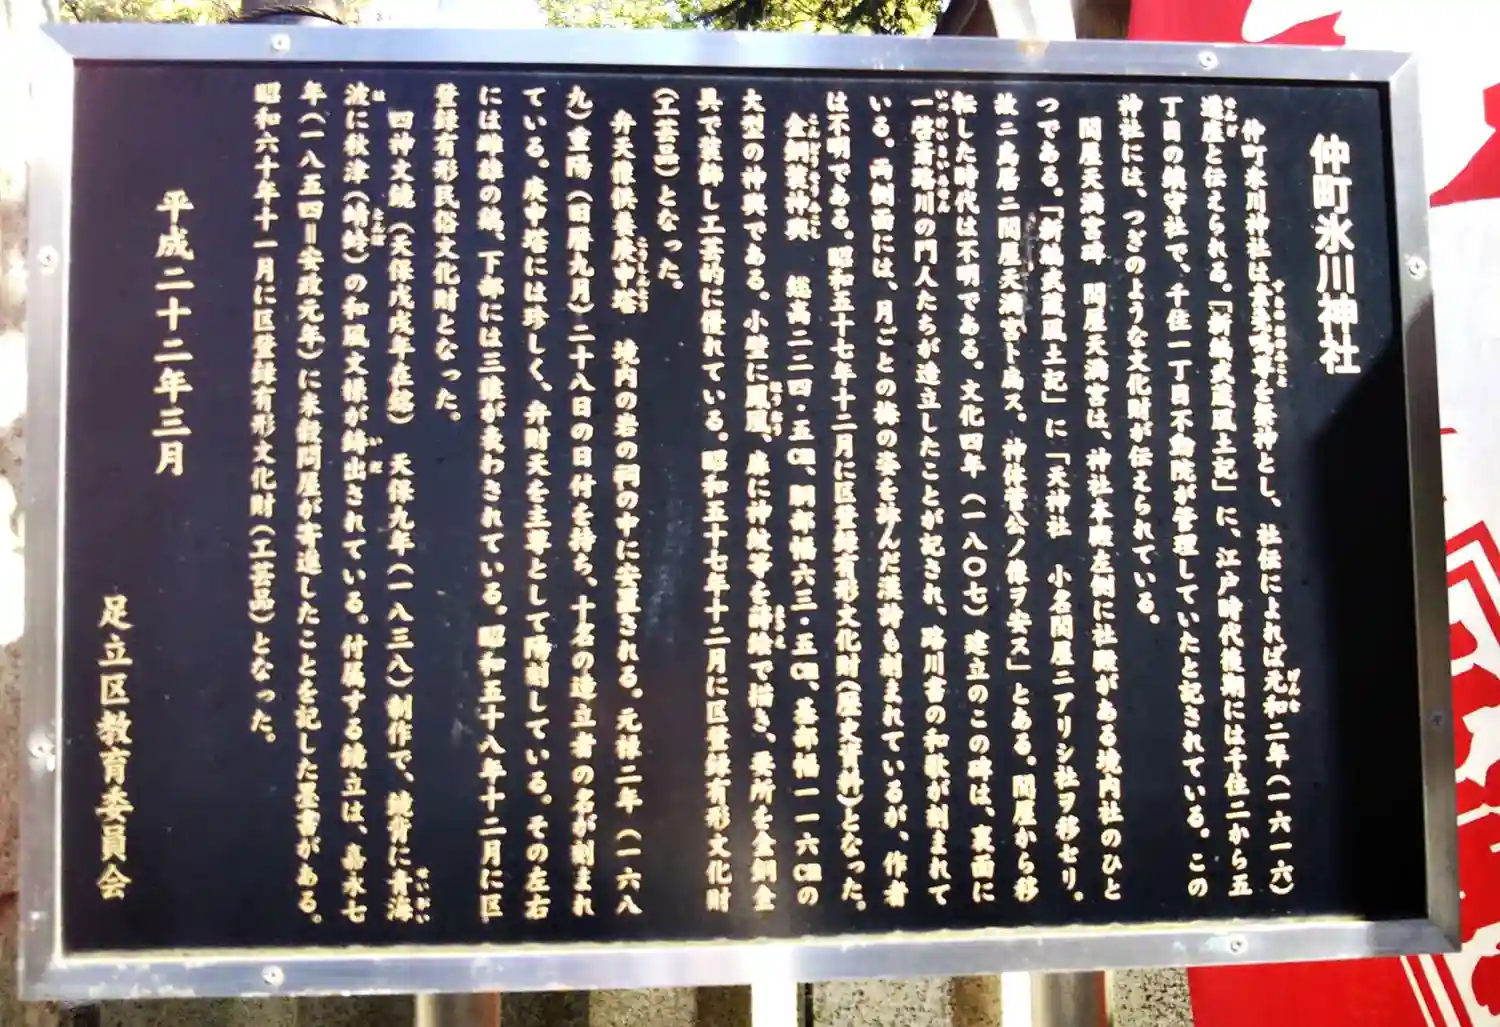 仲町氷川神社
仲町氷川神社は素戔嗚尊を祭神とし、社伝によれば元和二年(一六一六)
造座と伝えられる。「新編武蔵風土記」に、江戸時代後期には千住二から五
丁目の鎮守社で、千住一丁目不動院が管理していたと記されている。この
神社には、つぎのような文化財が伝えられている。
関屋天満宮碑 関屋天満宮は、神社本殿左側に社殿がある境内社のひと
つである。「新編武蔵風土記」に「天神社 小名関屋ニアリシ社ヲ移セリ。
故ニ鳥居ニ関屋天満宮ト扁ス。神体菅公ノ像ヲ安ス」とある。関屋から移
転した時代は不明である。文化四年(一八〇七)建立のこの碑は、裏面に
一啓斎路川の門人たちが造立したことが記され、路川書の和歌が刻まれて
いる。両側面には、月ごとの梅の姿を詠んだ漢詩も刻まれているが、作者
は不明である。昭和五十七年十二月に区登録有形文化財(歴史資料)となった。
金銅装神輿 総高二二四・五㎝、胴部幅六三・五㎝、基部幅一一六㎝の
大型の神輿である。小壁に鳳凰、扉に神紋等を蒔絵で描き、要所を金銅金
具で装飾し工芸的に優れている。昭和五十七年十二月に区登録有形文化財
(工芸品)となった。
弁天像供養庚申塔 境内の岩の祠の中に安置される。元禄二年(一六八
九)重陽(旧暦九月)二十八日の日付を持ち、十名の造立者の名が刻まれ
ている。庚申塔には珍しく、弁財天を主尊として陽刻している。その左右
には雌雄の鶏、下部には三猿が表わされている。昭和五十八年十二月に区
登録有形民俗文化財となった。
四神文鏡(天保戊戌年在銘) 天保九年(一八三八)制作で、鏡背に青海
波に秋津(蜻蛉)の和風文様が鋳出されている。付属する鏡立は、嘉永七
年(一八五四=安政元年)に米穀問屋が寄進したことを記した墨書がある。
昭和六十年十一月に区登録有形文化財(工芸品)となった。
平成二十二年三月
足立区教育委員会